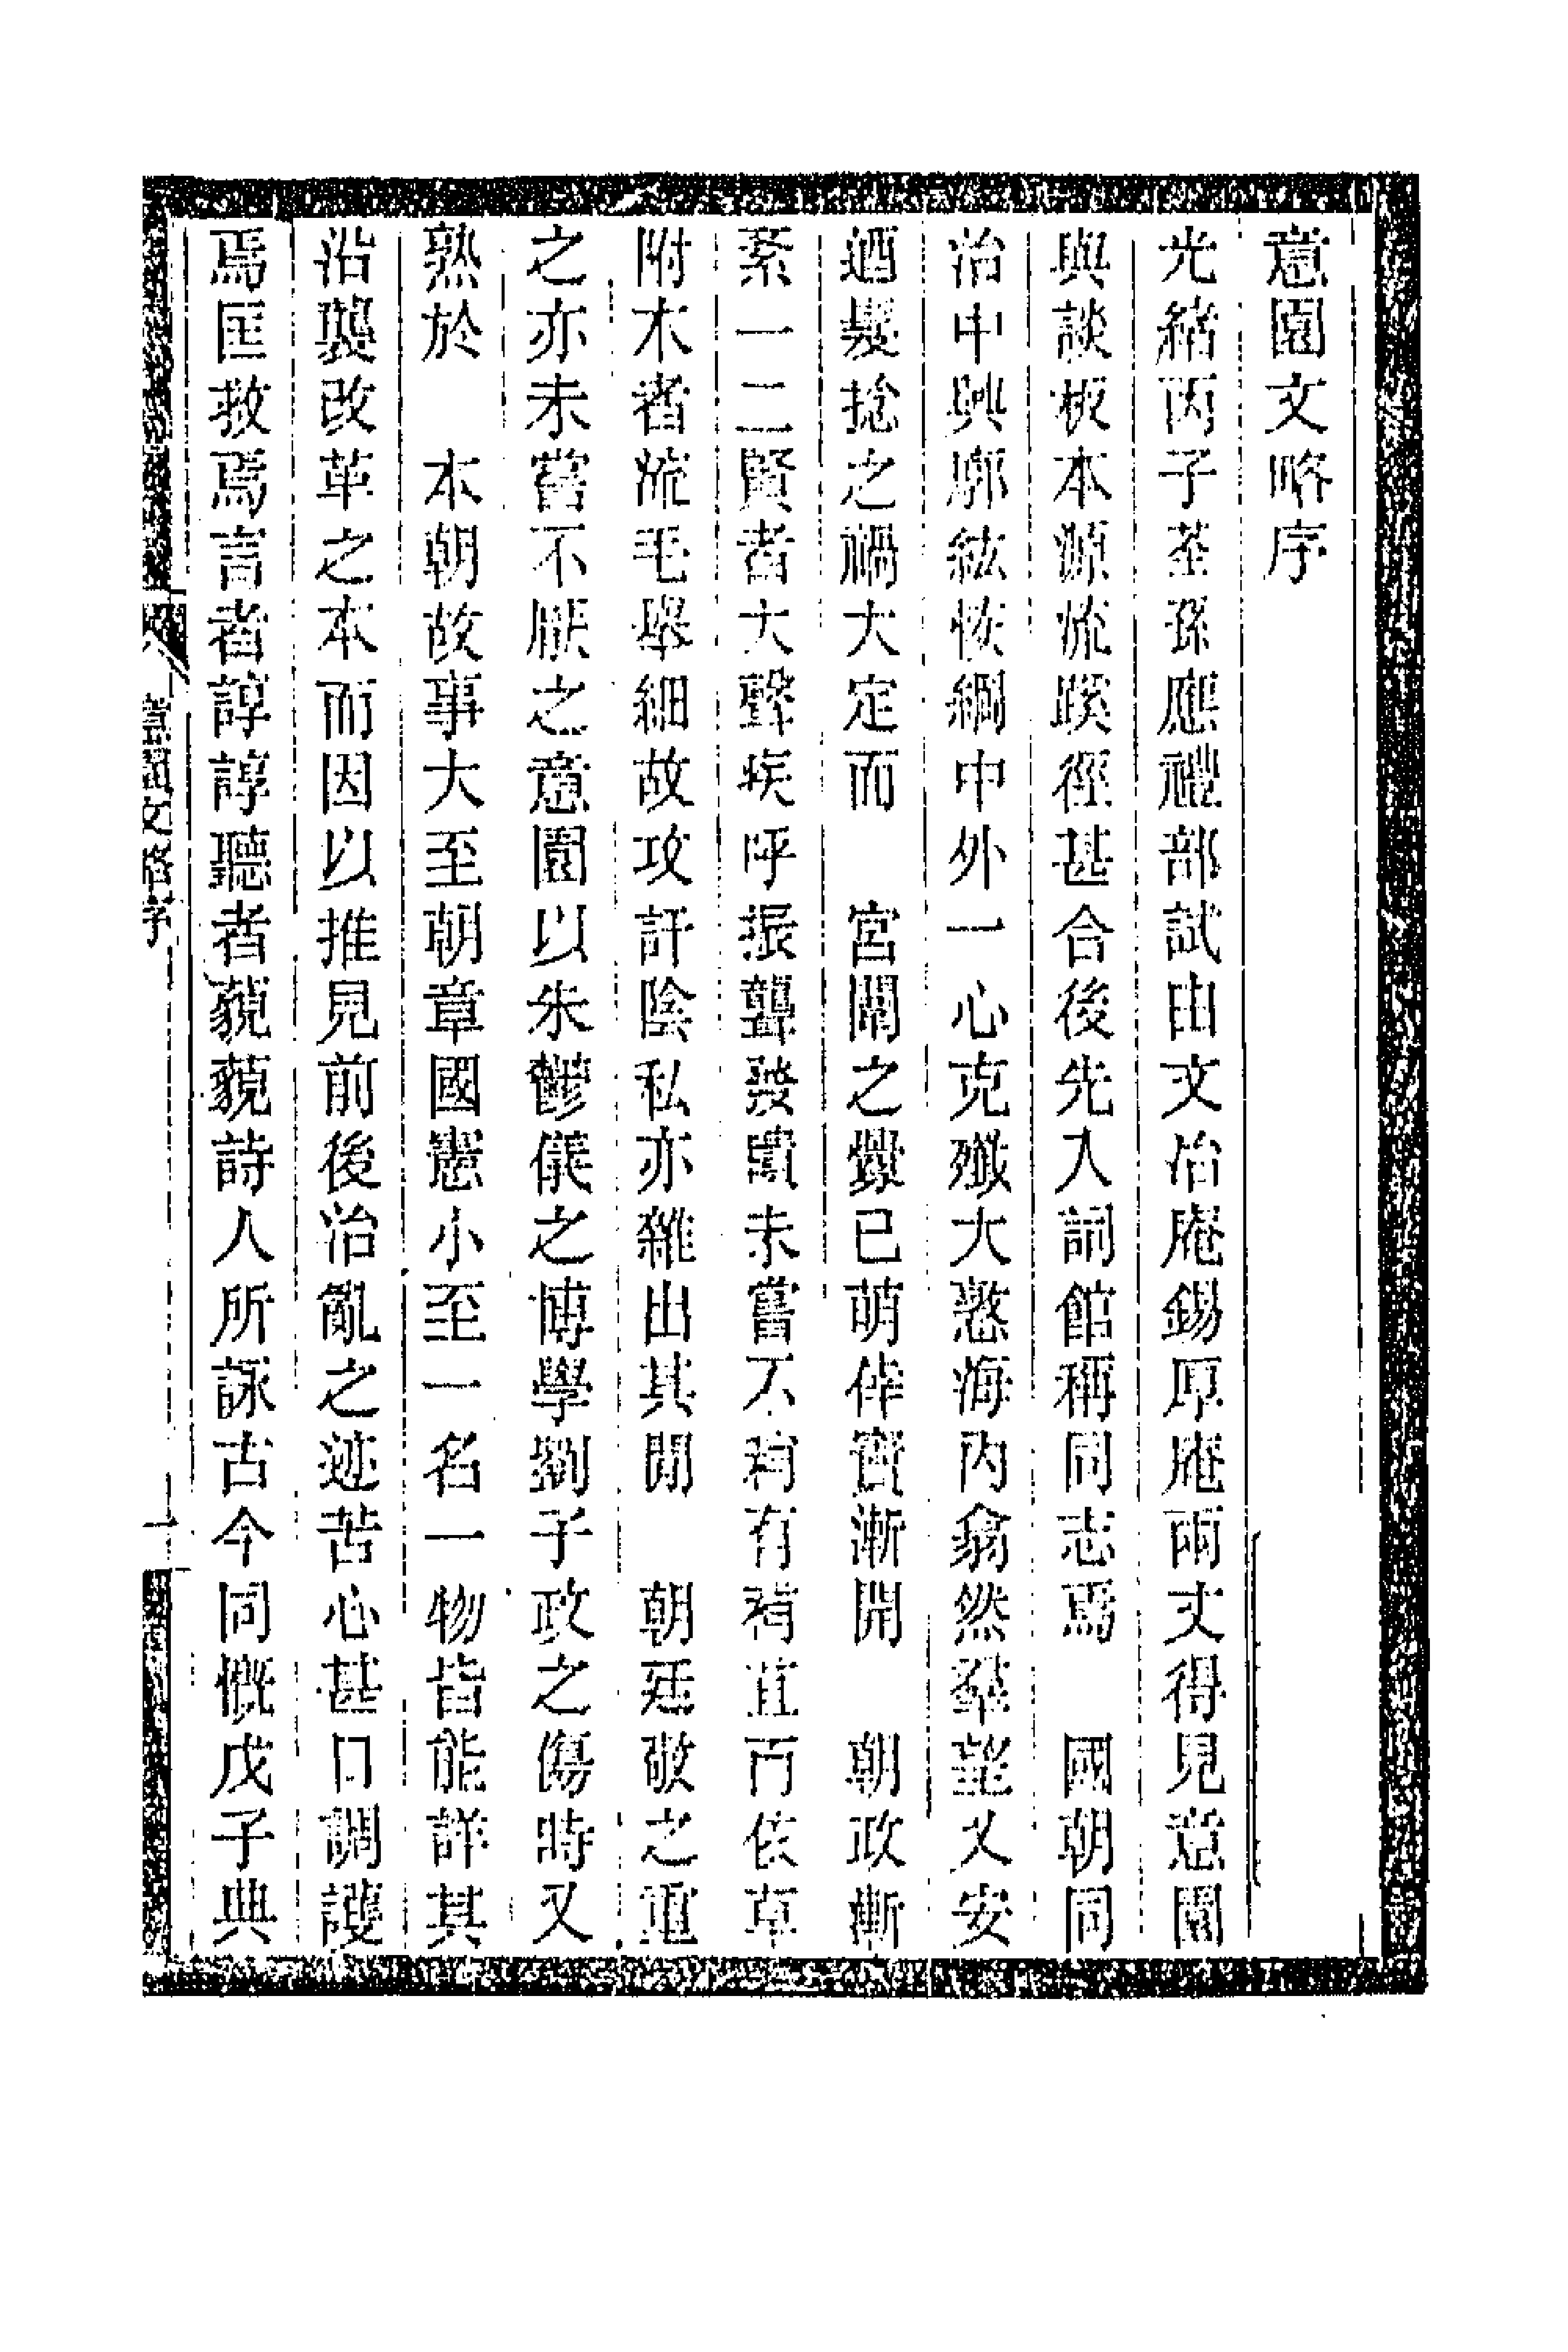 意園文略序
光緒丙子荃孫應禮部試由文冶庵錫厚庵兩丈得見意園
與談板本源流蹊徑甚合後先入詞館稱同志焉　國朝同
治中興廓紘恢綱中外一心克殲大憝海內翕然羣望乂安
迺髮捻之禍大定而　宮闈之釁已萌倖竇漸開　朝政漸
紊一二賢者大聲疾呼振聾發聵未嘗不稍有裨益而依草
附木者流毛舉細故攻訐陰私亦雜出其閒　朝廷敬之重
之亦未嘗不厭之意園以朱鬱儀之博學劉子政之傷時又
熟於　本朝故事大至朝章國憲小至一名一物皆能詳其
沿襲改革之本而因以推見前後治亂之迹苦心甚口調護
焉匡救焉言者諄諄聽者藐藐詩人所詠古今同慨戊子典
意園文略序
一